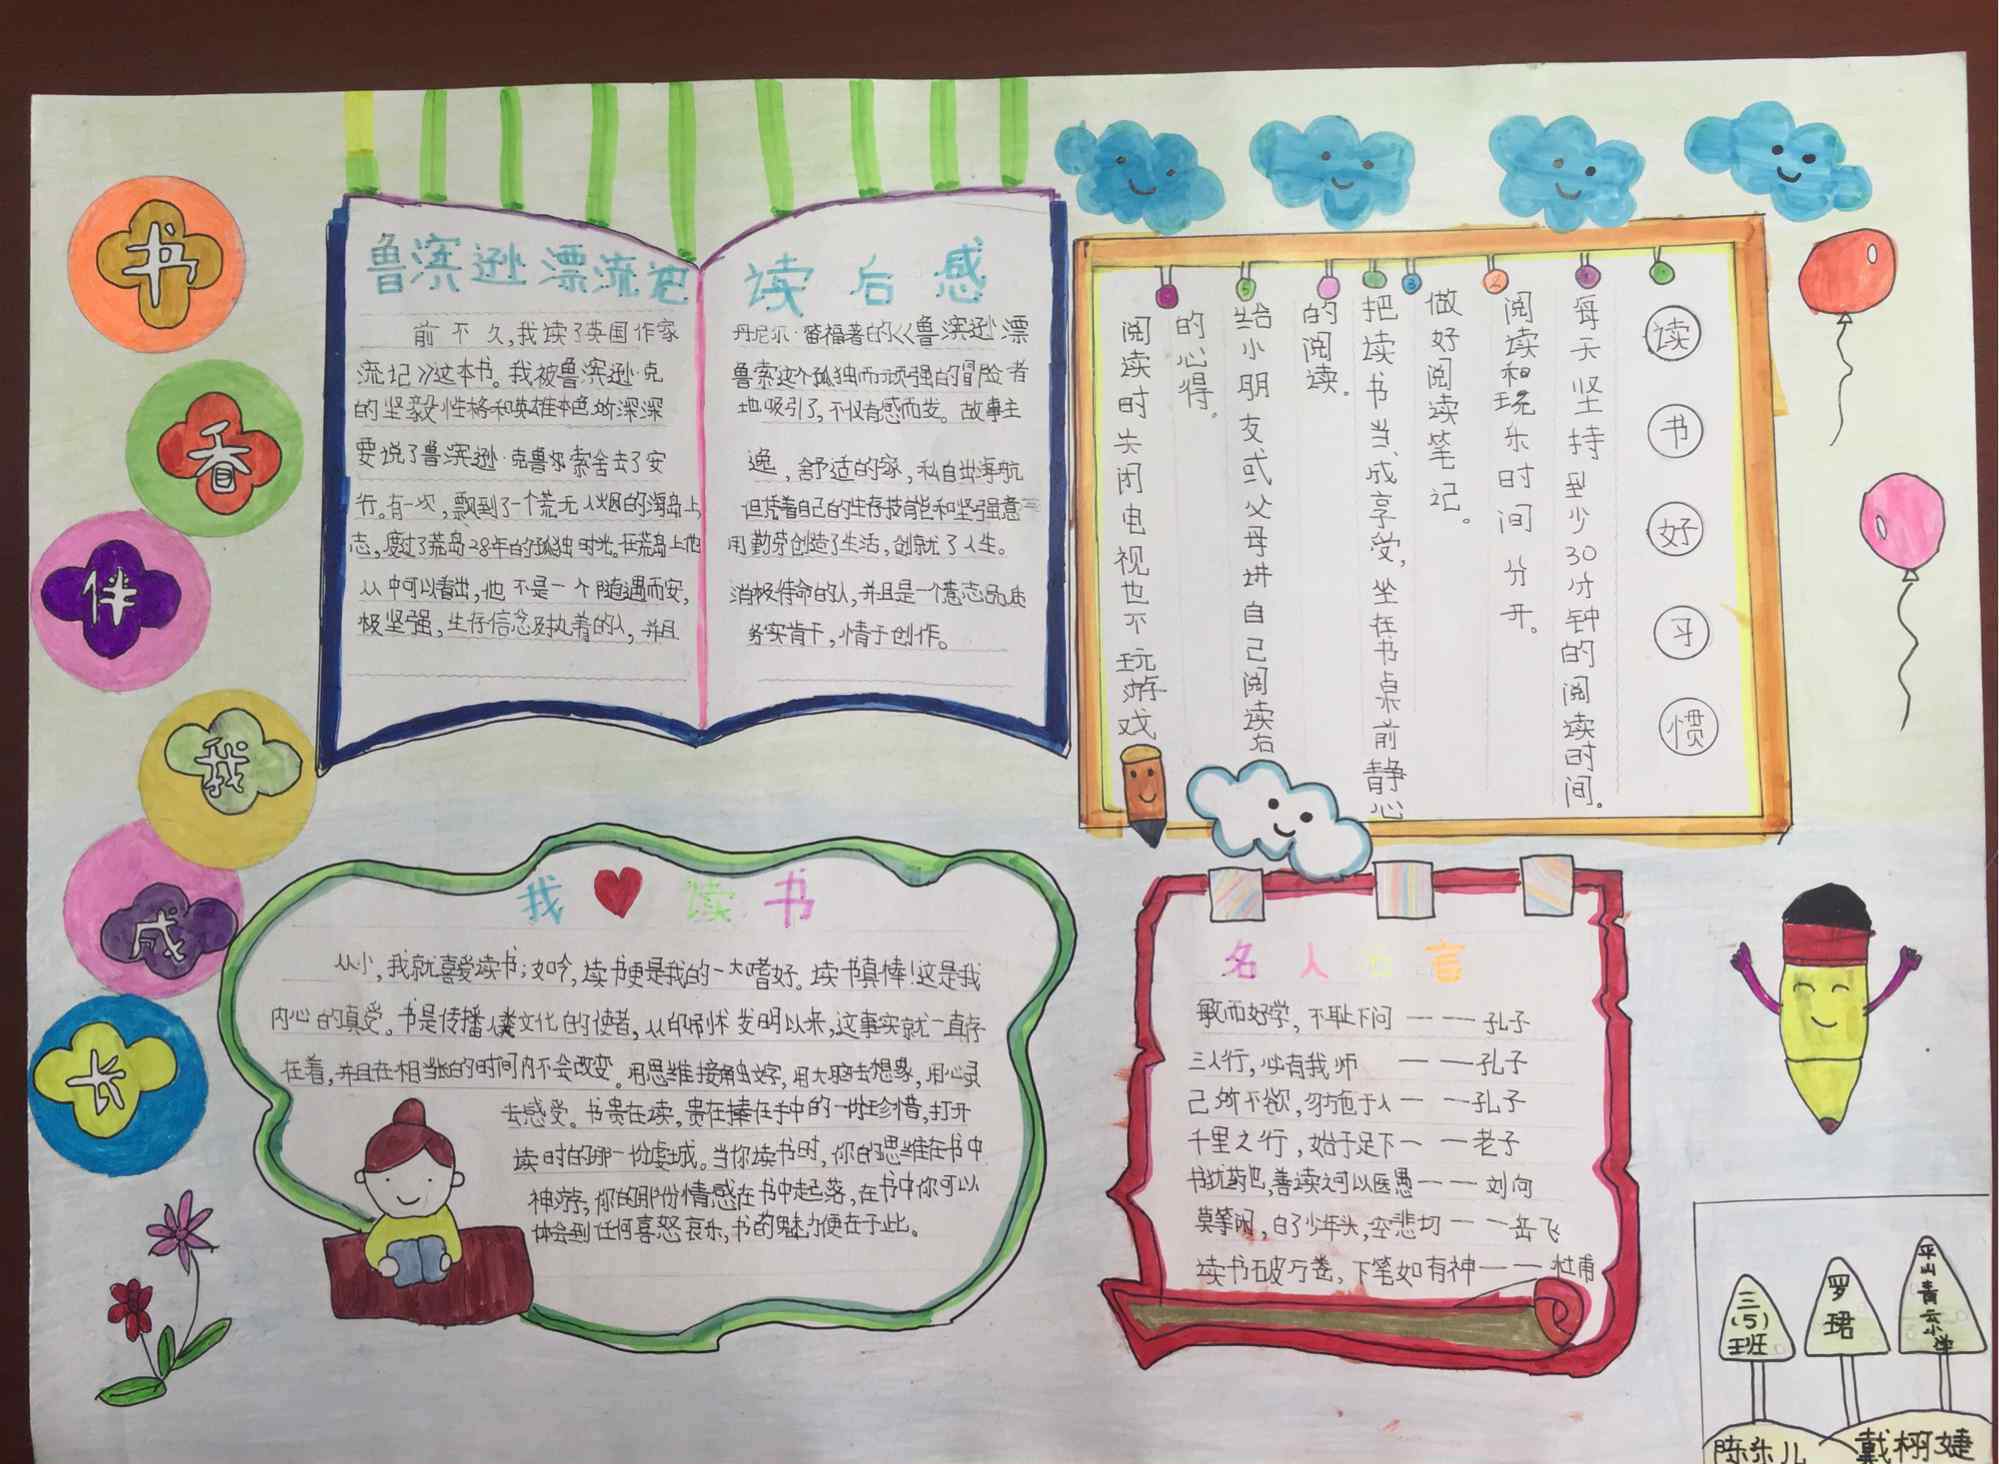 书
香
伴
我
成
长
鲁滨逊漂流记 读后感
前不久,我读了英国作家 丹尼尔·笛福著的《鲁滨逊漂
流记》这本书。我被鲁滨逊·克 鲁索这个孤独而顽强的冒险者
的坚毅性格和英雄本色所深深 地吸引了,不仅有感而发。故事主
要说了鲁滨逊·克鲁索舍去了安 逸,舒适的家,私自出海航
行。有一次,飘到了一个荒无人烟的海岛上, 但凭着自己的生存技能和坚强意
志,度过了荒岛28年的孤独时光。在荒岛上他 用勤劳创造了生活,创就了人生。
从中可以看出,他不是一个随遇而安, 消极待命的人,并且是一个意志品质
极坚强,生存信念对执着的人,并且 务实肯干,情于创作。
读书好习惯
每天坚持到少30分钟的阅读时间。
阅读和玩乐时间分开。
做好阅读笔记。
把读书当成享受,坐在书桌前静心
的阅读。
给小朋友或父母讲自己阅读后
的心得。
阅读时关闭电视也不玩游戏
我 读书
从小,我就喜爱读书;如今,读书更是我的一大嗜好。读书真棒!这是我
内心的真受。书是传播人类文化的使者,从印刷术发明以来,这事实就一直存
在着,并且在相当长的时间内不会改变。用思维接触文字,用大脑去想象,用心灵
去感受。书贵在读,贵在捧在手中的一份珍惜,打开
读时的那一份虔诚。当你读书时,你的思维在书中
神游,你的那份情感在书中起落,在书中你可以
体会到任何喜怒哀乐,书的魅力便在于此。
名人名言
敏而好学,不耻下问———孔子
三人行,必有我师——孔子
己所不欲,勿施于人——孔子
千里之行,始于足下——老子
书犹药也,善读之可以医愚———刘向
莫等闲,白了少年头,空悲切——岳飞
读书破万卷,下笔如有神———杜甫
三(5)班
罗珺
平山青云小学
陈乐儿
戴栩婕